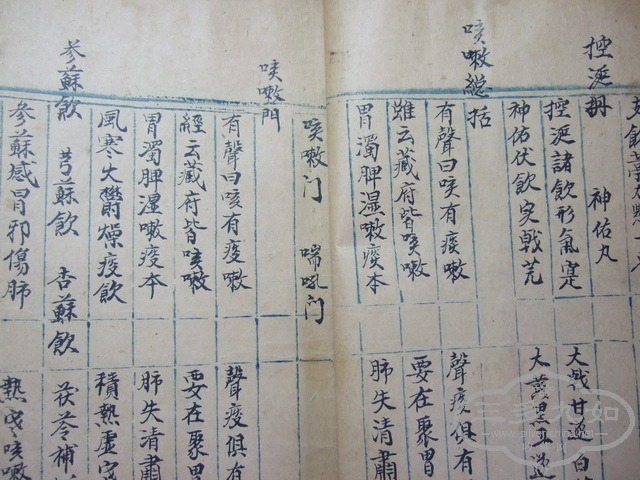 控涎丹　神佑丸
控涎諸飲形氣寔　大戟甘遂白
神佑伏飲寔戟芫　大黃黑丑遂
咳嗽総括
有聲曰咳有痰嗽　聲痰俱有
雖云藏府皆咳嗽　要在聚胃
胃濁脾濕嗽痰本　肺失清肅
咳嗽门　喘吼门
咳嗽門
有聲曰咳有痰嗽　聲痰俱有
經云藏府皆咳嗽　要在聚胃
胃濁脾溼嗽痰本　肺失清肅
風寒火欝燥痰飲　積熱虛寔
參蘇飲　芎蘇飲　杏蘇飲　茯苓補
參蘇感冒邪傷肺　熱寔咳嗽
三多九如